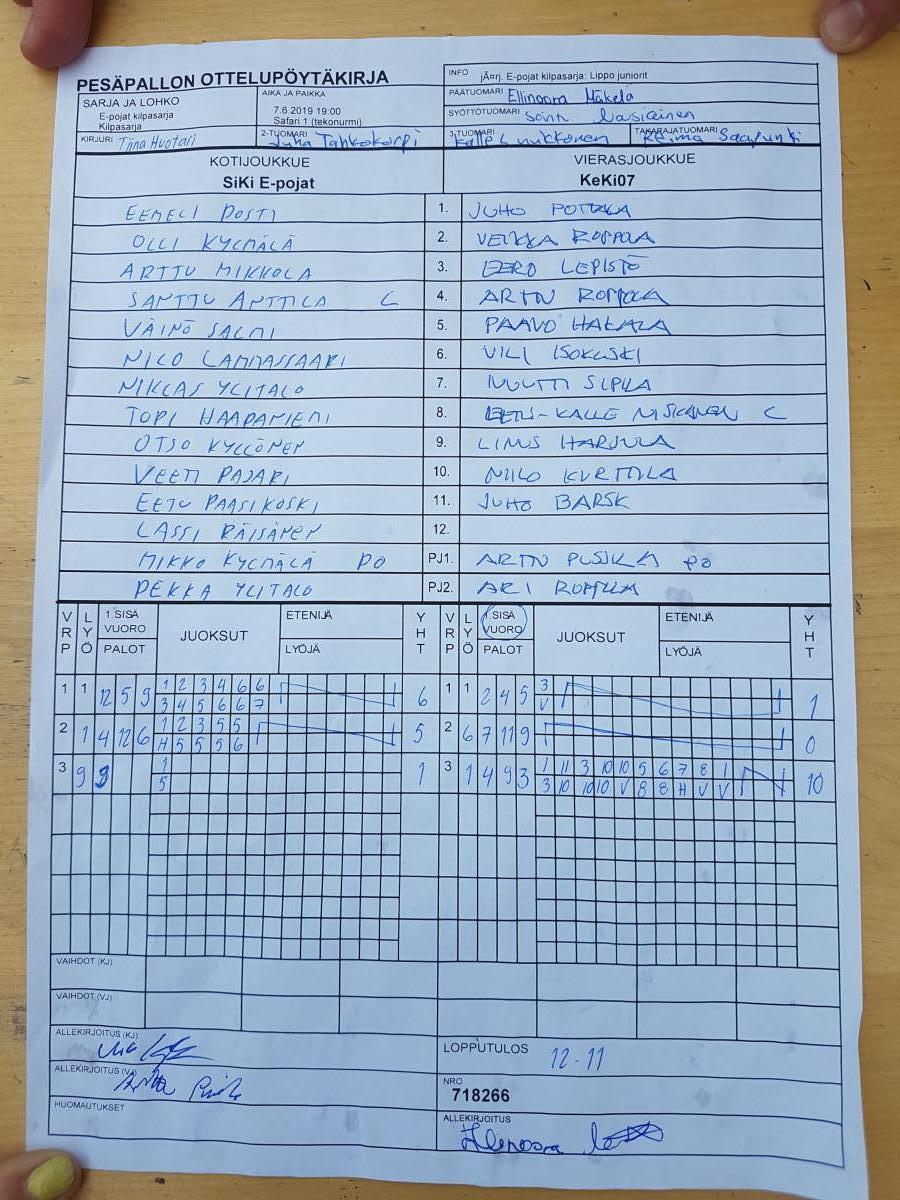 PESÄPALLON OTTELUPÖYTÄKIRJA
SARJA JA LOHKO
E-pojat kilpasarja
Kilpasarja
AIKA JA PAIKKA
7.6.2019 19:00
Safari 1 (tekonurmi)
INFO jÃ¤rj. E-pojat kilpasarja: Lippo juniorit
PÄÄTUOMARI Ellinoora Mäkelä
SYÖTTÖTUOMARI
KIRJURI Tiina Huotari
2-TUOMARI Juha Tahkokorpi
3-TUOMARI Kalle
TAKARAJATUOMARI Reima
KOTIJOUKKUE
SiKi E-pojat
VIERASJOUKKUE
KeKi07
EEMELI POSTI 1. JUHO POTKKA
OLLI KYLMÄLÄ 2. VEIKKA ROPPOLA
ARTTU MIKKOLA 3. EERO LEPISTÖ
SANTTU ANTTILA C 4. ARTTU ROPPOLA
VÄINÖ SALMI 5. PAAVO HAKALA
NILO LAMMASSAARI 6. VILI ISOKUSKI
NIKLAS YLITALO 7. NUUTTI SIPILÄ
TOPI HAAPANIEMI 8. EETU-KALLE NISKANEN C
OTSO KYLLÖNEN 9. LINUS HARJULA
VEETI PAJARI 10. NIILO KURTTILA
EETU PAASIKOSKI 11. JUHO BARSK
LASSI RÄISÄNEN 12.
MIKKO KYLMÄLÄ PO PJ1. ARTTU PUSKA PO
PEKKA YLITALO PJ2. ARI ROPPOLA
VRP LYÖ 1.SISÄ VUORO PALOT JUOKSUT ETENIJÄ LYÖJÄ YHT VRP LYÖ 1.SISÄ VUORO PALOT JUOKSUT ETENIJÄ LYÖJÄ YHT
1 1 12 5 9 1 2 3 4 6 6 6 1 1 2 4 5 3 1
3 4 5 6 6 7 V
2 1 4 12 6 1 2 3 5 5 5 2 6 7 11 9 0
H 5 5 5 6
3 9 9 1 1 3 1 4 9 3 1 11 3 10 10 5 6 7 8 1 10
5 3 10 10 10 V 8 8 H V V
VAIHDOT (KJ)
VAIHDOT (VJ)
ALLEKIRJOITUS (KJ)
LOPPUTULOS 12-11
ALLEKIRJOITUS (VJ)
NRO
718266
HUOMAUTUKSET
ALLEKIRJOITUS